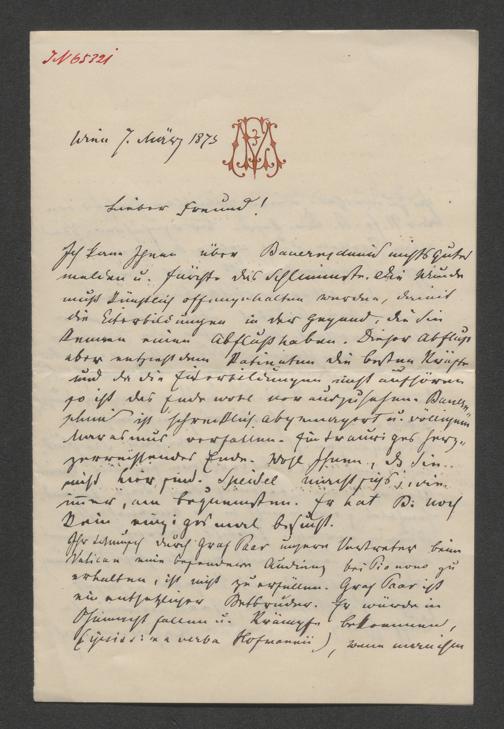 IN 65321
Wien 7. März 1873
Lieber Freund!
Ich kann Ihnen über Bauernschmid nichts Gutes
melden u. fürchte das Schlimmste. Die Wunde
muß künstlich offengehalten werden, damit
die Eiterbildungen in der Gegend, die Sie
kennen einen Abfluß haben. Dieser Abfluß
aber entzieht dem Patienten die besten Kräfte
und da die Eiterbildungen nicht aufhören
so ist das Ende wohl vorauszusehen. Bauern-
schmid ist schrecklich abgemagert u. völligem
Marasmus verfallen. Ein trauriges herz-
zerreissendes Ende. Wohl Ihnen, daß Sie
nicht hier sind. Speidel macht sich's, wie
immer, am bequemsten. Er hat B. noch
kein einziges mal besucht.
Ihr Wunsch durch Graf Paar unsern Vertreter beim
Vatican eine besondere Audienz bei Pio nono zu
erhalten, ist nicht zu erfüllen. Graf Paar ist
ein entsetzlicher Betbruder. Er würde in
Ohnmacht fallen u. Krämpfe bekommen,
(ipsissima verba Hofmannii), wenn man ihm